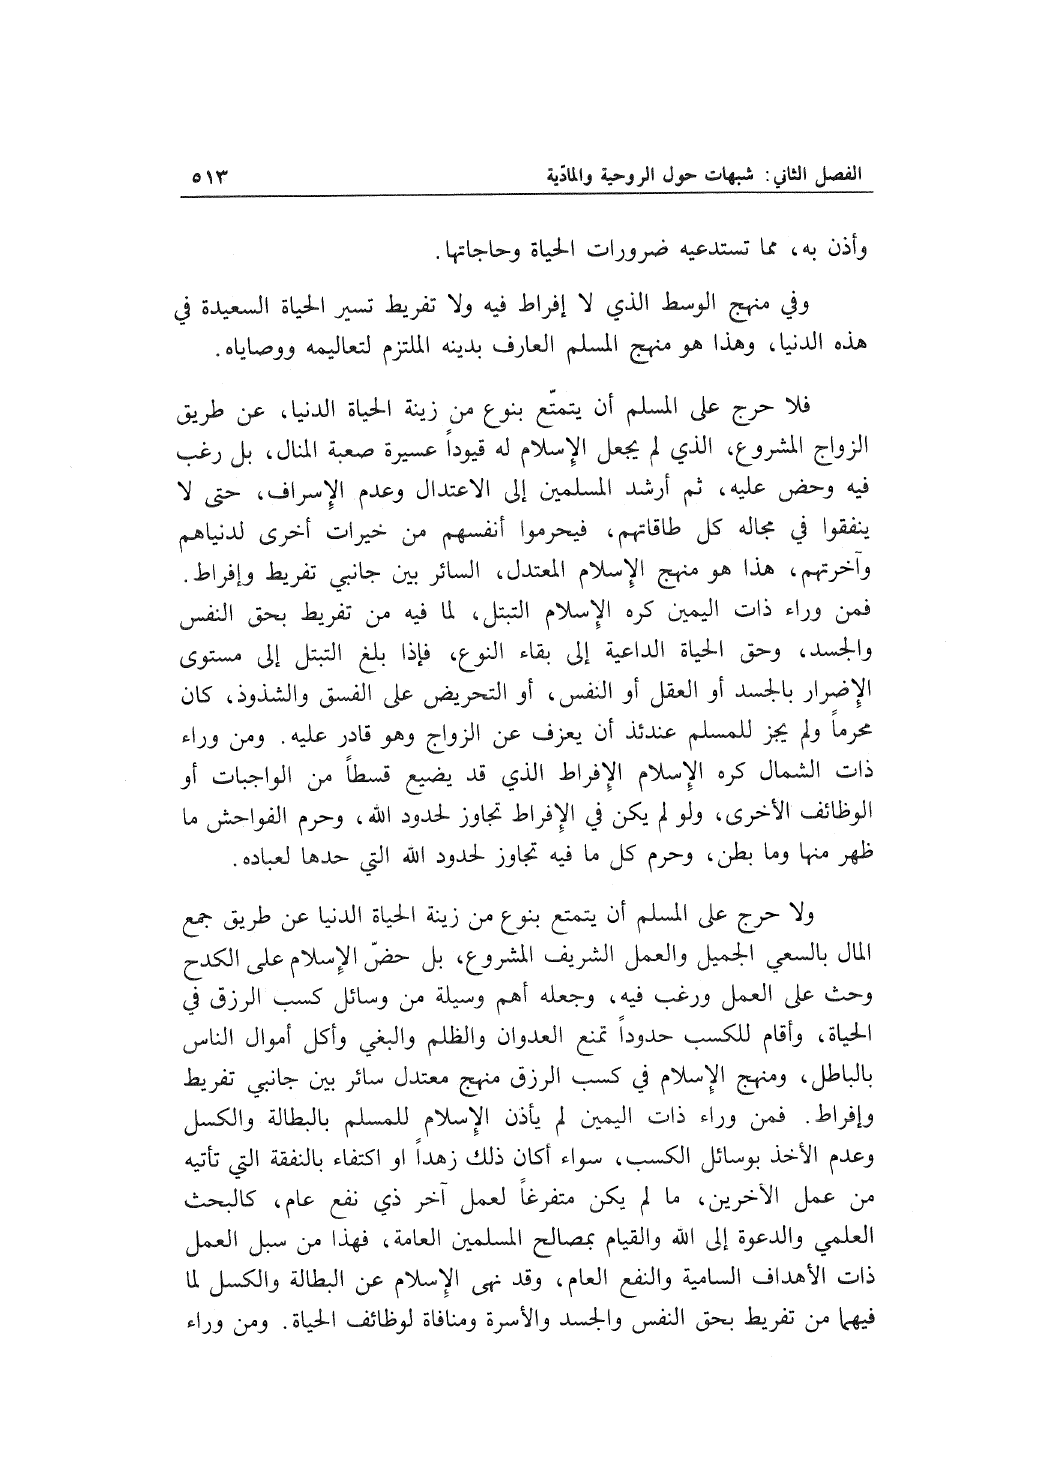 الفصل الثاني: شبهات حول الروحية والمادّية ٥١٣
وأذن به، مما تستدعيه ضرورات الحياة وحاجاتها.
وفي منهج الوسط الذي لا إفراط فيه ولا تفريط تسير الحياة السعيدة في
هذه الدنيا، وهذا هو منهج المسلم العارف بدينه الملتزم لتعاليمه ووصاياه.
فلا حرج على المسلم أن يتمتّع بنوع من زينة الحياة الدنيا، عن طريق
الزواج المشروع، الذي لم يجعل الإسلام له قيوداً عسيرة صعبة المنال، بل رغب
فيه وحض عليه، ثم أرشد المسلمين إلى الاعتدال وعدم الإسراف، حتى لا
ينفقوا في مجاله كل طاقاتهم، فيحرموا أنفسهم من خيرات أخرى لدنياهم
وآخرتهم، هذا هو منهج الإسلام المعتدل، السائر بين جانبي تفريط وإفراط.
فمن وراء ذات اليمين كره الإسلام التبتل، لما فيه من تفريط بحق النفس
والجسد، وحق الحياة الداعية إلى بقاء النوع، فإذا بلغ التبتل إلى مستوى
الإضرار بالجسد أو العقل أو النفس، أو التحريض على الفسق والشذوذ، كان
محرماً ولم يجز للمسلم عندئذ أن يعزف عن الزواج وهو قادر عليه. ومن وراء
ذات الشمال كره الإسلام الإفراط الذي قد يضيع قسطاً من الواجبات أو
الوظائف الأخرى، ولو لم يكن في الإفراط تجاوز لحدود الله، وحرم الفواحش ما
ظهر منها وما بطن، وحرم كل ما فيه تجاوز لحدود الله التي حدها لعباده.
ولا حرج على المسلم أن يتمتع بنوع من زينة الحياة الدنيا عن طريق جمع
المال بالسعي الجميل والعمل الشريف المشروع، بل حضّ الإسلام على الكدح
وحث على العمل ورغب فيه، وجعله أهم وسيلة من وسائل كسب الرزق في
الحياة، وأقام للكسب حدوداً تمنع العدوان والظلم والبغي وأكل أموال الناس
بالباطل، ومنهج الإسلام في كسب الرزق منهج معتدل سائر بين جانبي تفريط
وإفراط. فمن وراء ذات اليمين لم يأذن الإسلام للمسلم بالبطالة والكسل
وعدم الأخذ بوسائل الكسب، سواء أكان ذلك زهداً او اكتفاء بالنفقة التي تأتيه
من عمل الآخرين، ما لم يكن متفرغاً لعمل آخر ذي نفع عام، كالبحث
العلمي والدعوة إلى الله والقيام بمصالح المسلمين العامة، فهذا من سبل العمل
ذات الأهداف السامية والنفع العام، وقد نهى الإسلام عن البطالة والكسل لما
فيهما من تفريط بحق النفس والجسد والأسرة ومنافاة لوظائف الحياة. ومن وراء